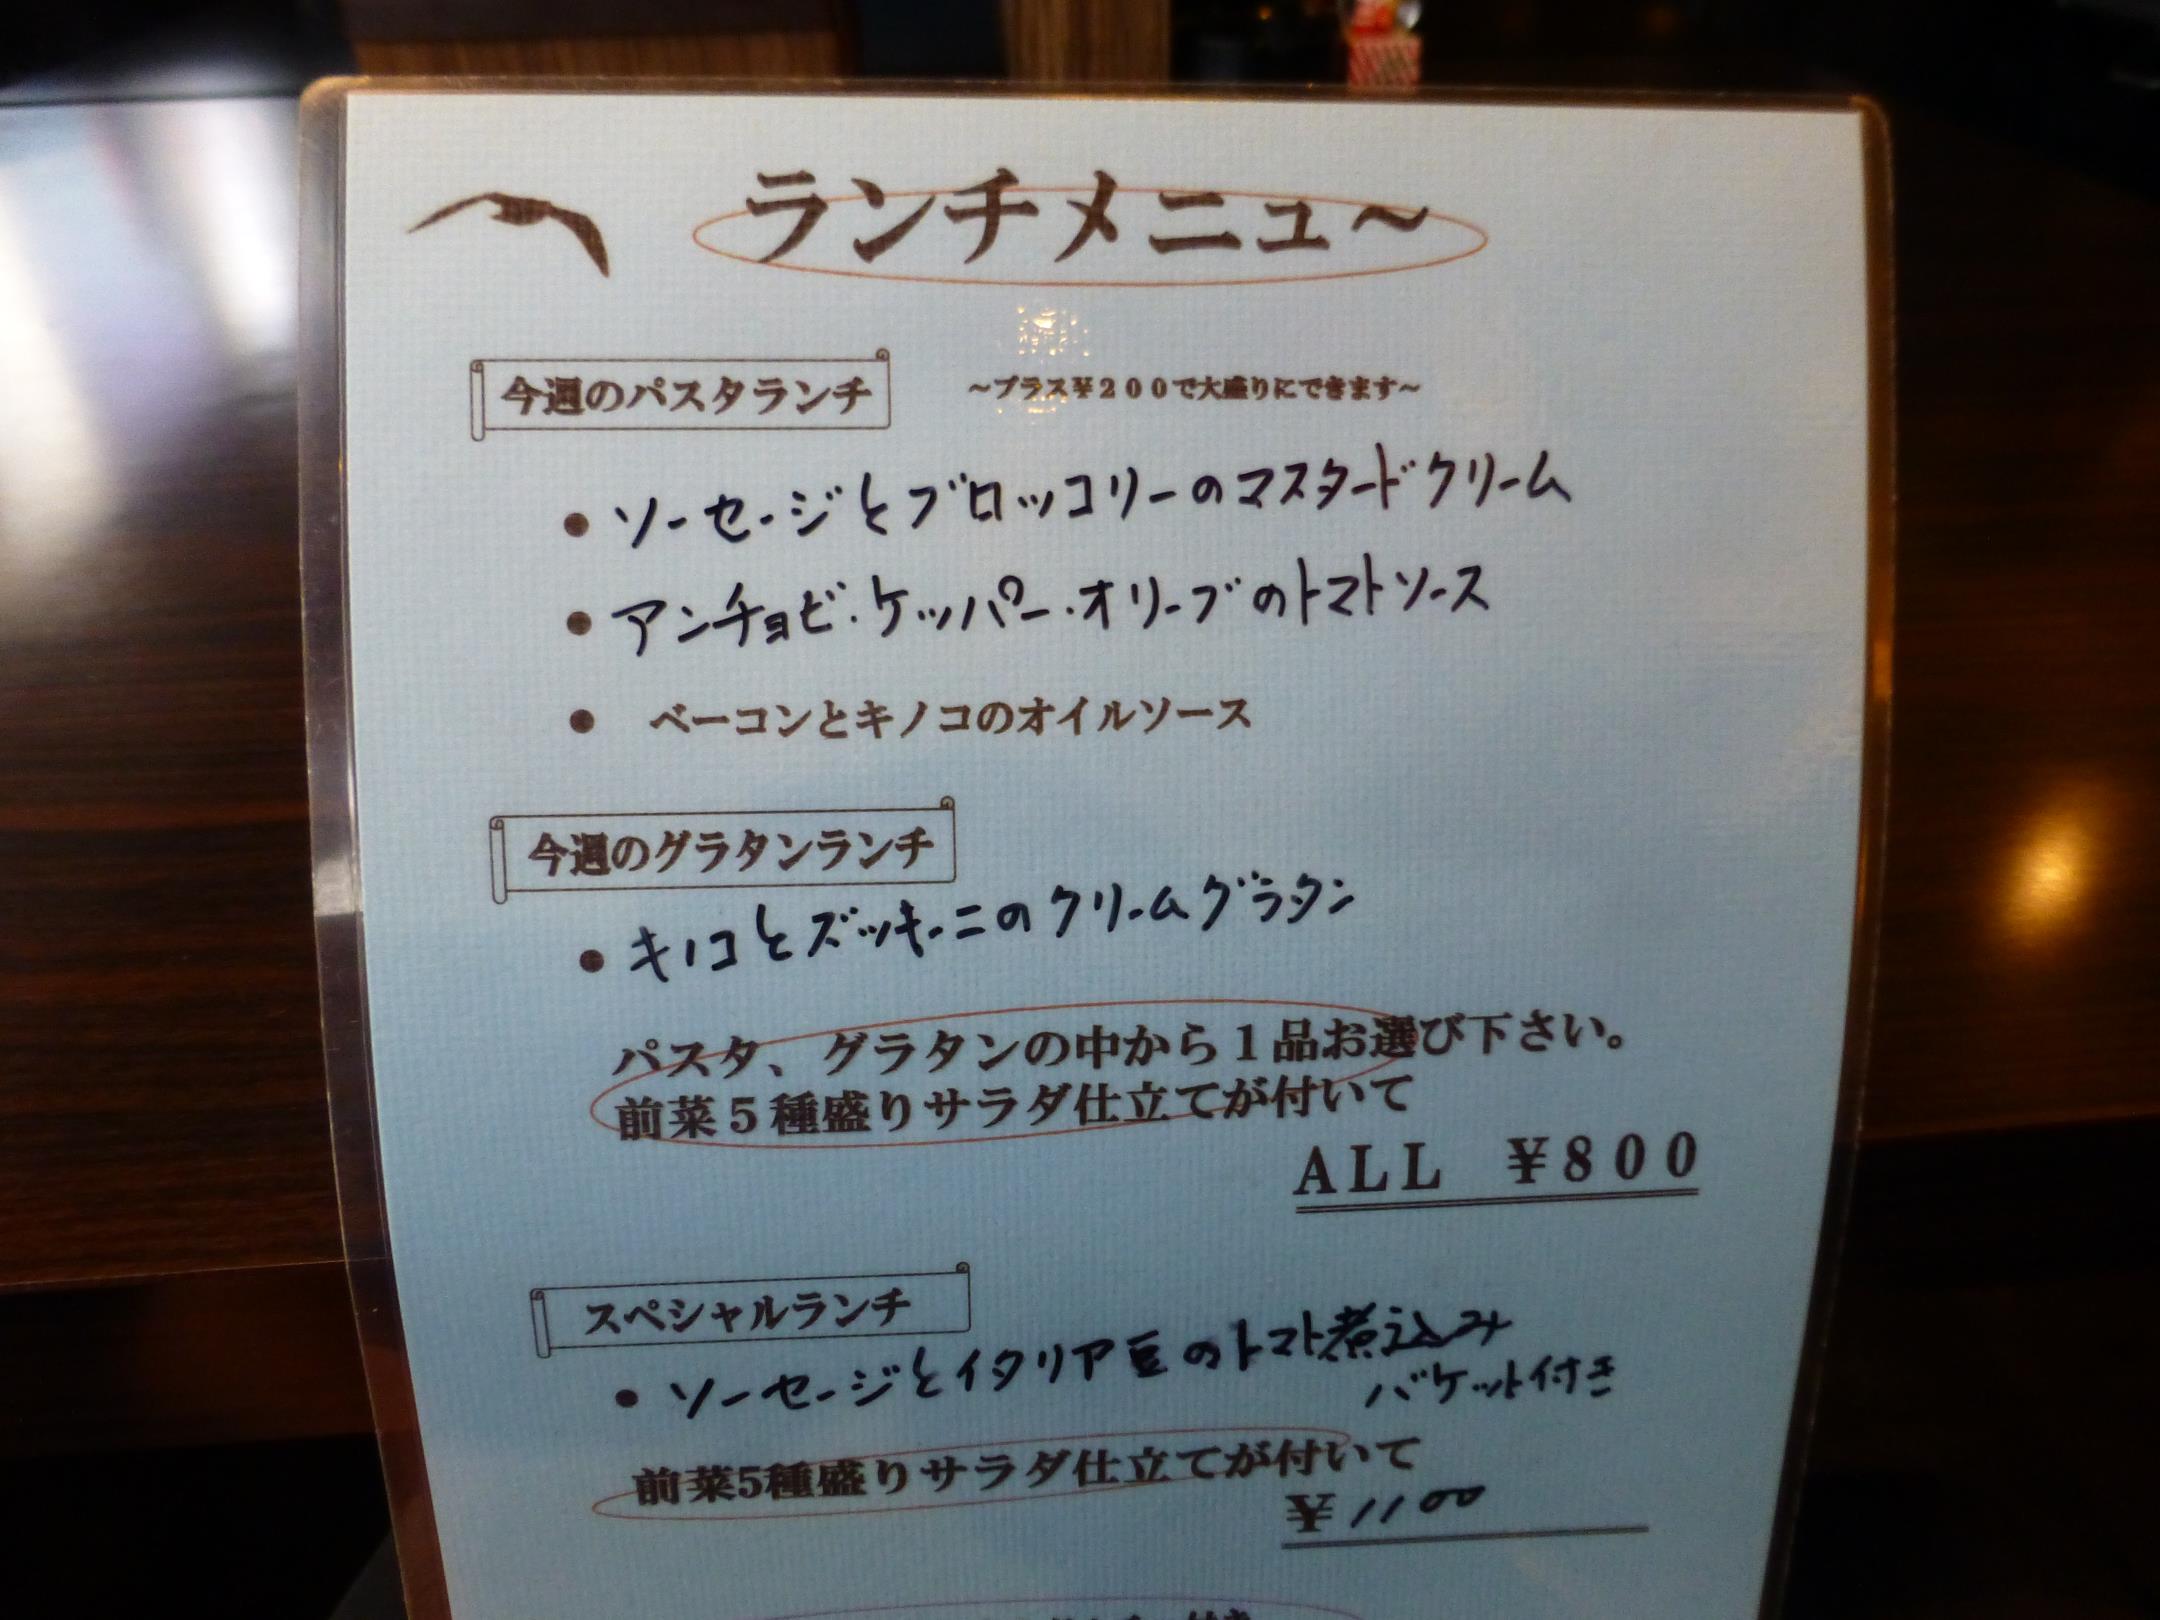 ランチメニュ～
今週のパスタランチ
～プラス￥２００で大盛りにできます～
● ソーセージとブロッコリーのマスタードクリーム
● アンチョビ・ケッパー・オリーブのトマトソース
● ベーコンとキノコのオイルソース
今週のグラタンランチ
● キノコとズッキーニのクリームグラタン
パスタ、グラタンの中から１品お選び下さい。
前菜５種盛りサラダ仕立てが付いて
ALL ￥８００
スペシャルランチ
● ソーセージとイタリア豆のトマト煮込み
バケット付き
前菜5種盛りサラダ仕立てが付いて
￥1100